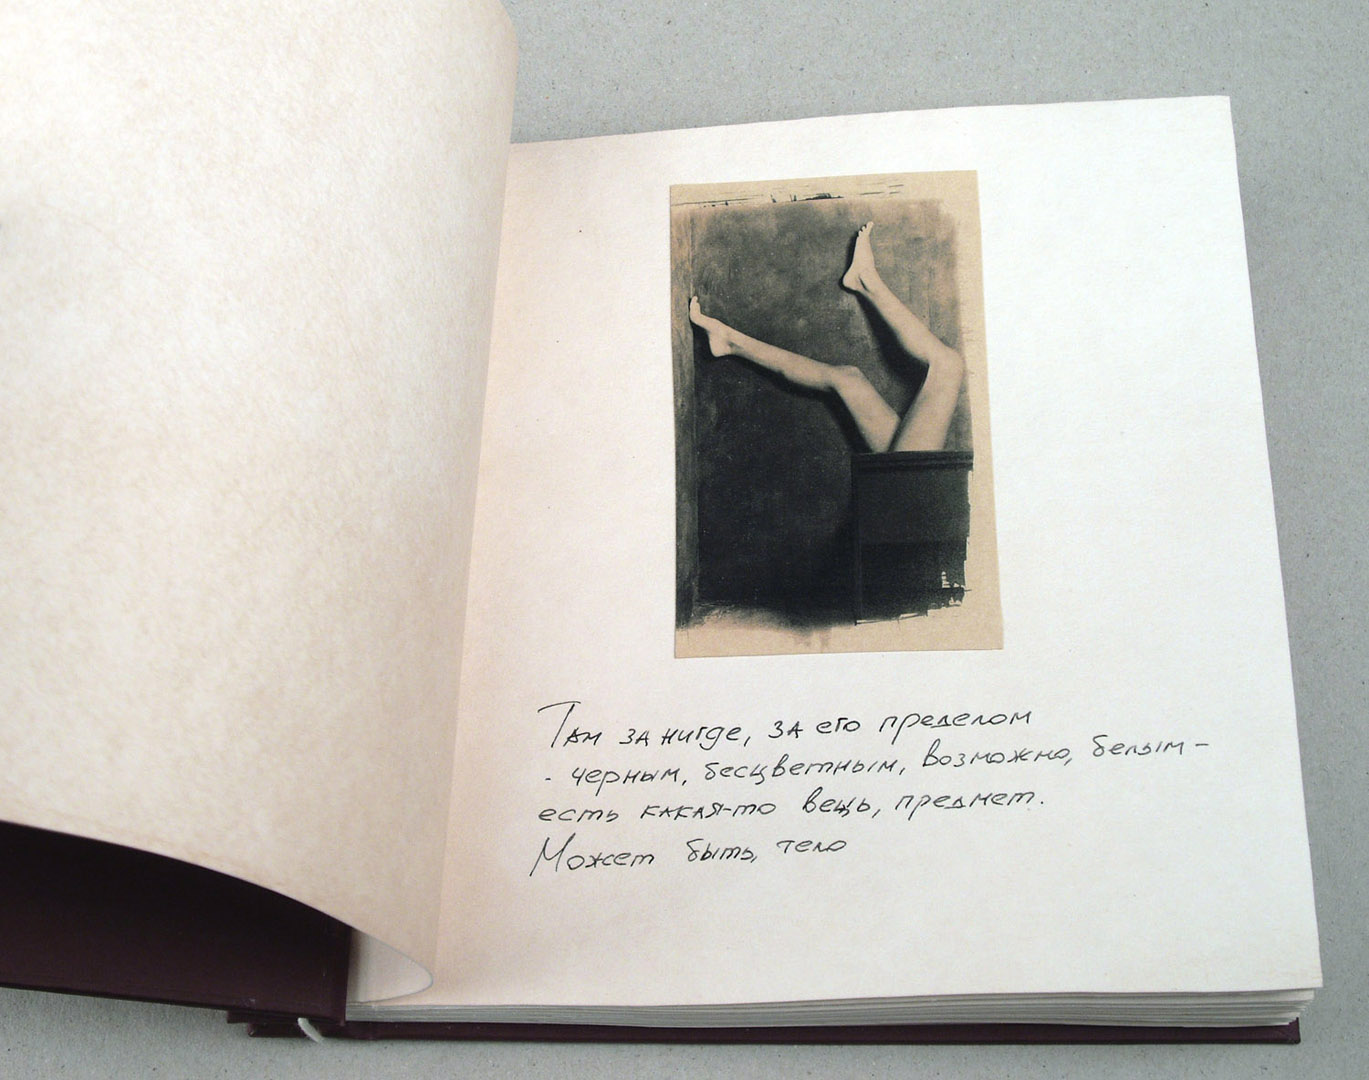 Там за нигде, за его пределом
- черным, бесцветным, возможно, белым -
есть какая-то вещь, предмет.
Может быть, тело